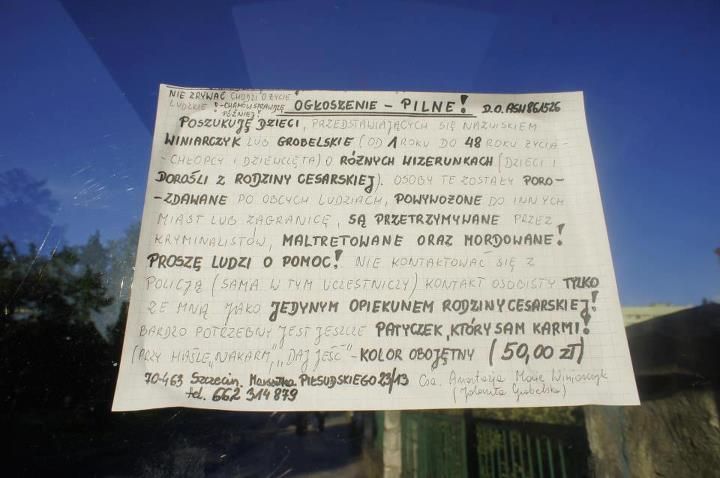 NIE ZRYWAĆ CHODZI O ŻYCIE
LUDZKIE!
PÓŹNIEJ!
OGŁOSZENIE - PILNE! D.O. ASH 861526
POSZUKUJĘ DZIECI, PRZEDSTAWIAJĄCYCH SIĘ NAZWISKIEM
WINIARCZYK LUB GROBELSKIE (OD 1 ROKU DO 48 ROKU ŻYCIA -
- CHŁOPCY I DZIEWCZĘTA) O RÓŻNYCH WIZERUNKACH (DZIECI I
DOROŚLI Z RODZINY CESARSKIEJ). OSOBY TE ZOSTAŁY PORO-
- ZDAWANE PO OBCYCH LUDZIACH, POWYWOŻONE DO INNYCH
MIAST LUB ZAGRANICĘ, SĄ PRZETRZYMYWANE PRZEZ
KRYMINALISTÓW, MALTRETOWANE ORAZ MORDOWANE!
PROSZĘ LUDZI O POMOC! NIE KONTAKTOWAĆ SIĘ Z
POLICJĄ (SAMA W TYM UCZESTNICZY) KONTAKT OSOBISTY TYLKO
ZE MNĄ JAKO JEDYNYM OPIEKUNEM RODZINY CESARSKIEJ!
BARDZO POTRZEBNY JEST JESZCZE PATYCZEK, KTÓRY SAM KARMI!
(PRZY HAŚLE „NAKARM", „DAJ JEŚĆ" - KOLOR OBOJĘTNY (50,00 ZŁ)
70-463 Szczecin, Marszałka PIŁSUDSKIEGO 23/13 Csa. Anastazja Maria Winiarczyk
tel. 662 314 879 (Jolanta Grobelska)